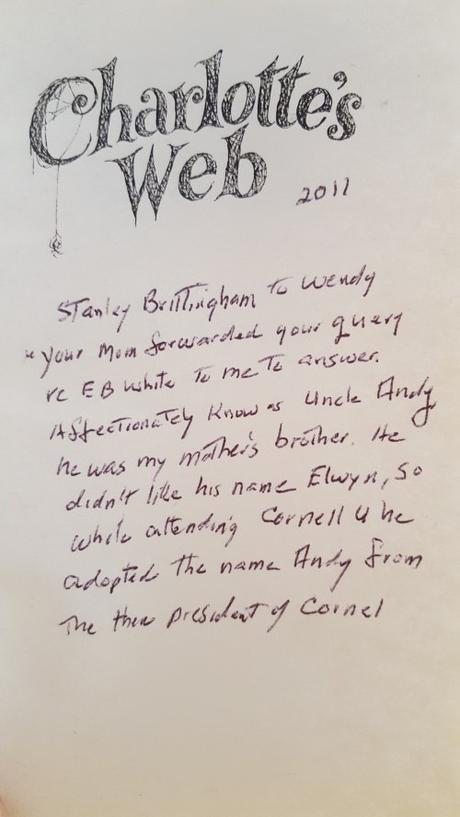 Charlotte's
Web
2011
Stanley Brittingham to Wendy
"Your Mom forwarded your query
rc EB White to me to answer.
Affectionately Know as Uncle Andy
he was my mother's brother. He
didn't like his name Elwyn, so
while attending Cornell U he
adopted the name Andy from
The then president of Cornel